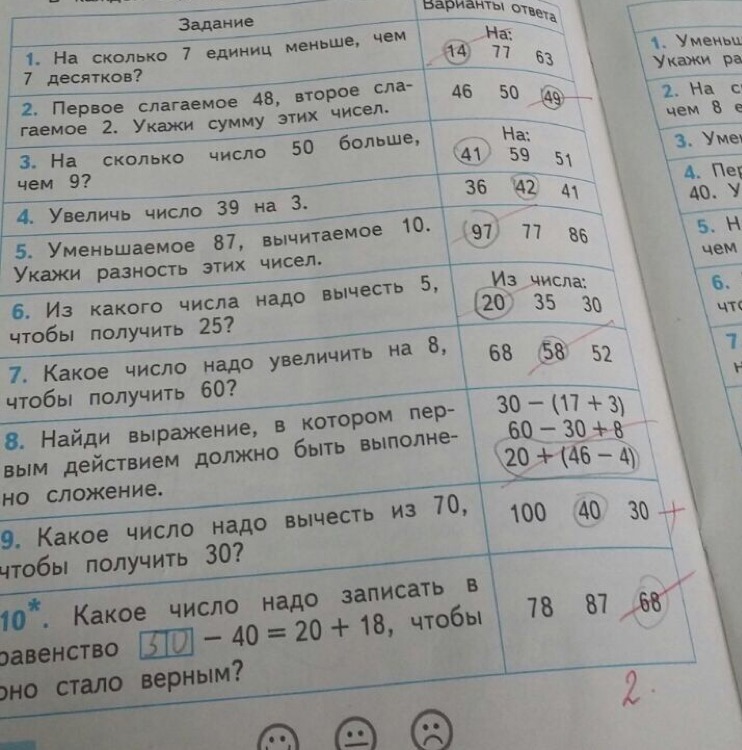 Задание
Варианты ответа
1. На сколько 7 единиц меньше, чем
7 десятков?
На:
14 77 63
2. Первое слагаемое 48, второе сла-
гаемое 2. Укажи сумму этих чисел.
46 50 49
3. На сколько число 50 больше,
чем 9?
На:
41 59 51
4. Увеличь число 39 на 3.
36 42 41
5. Уменьшаемое 87, вычитаемое 10.
Укажи разность этих чисел.
97 77 86
6. Из какого числа надо вычесть 5,
чтобы получить 25?
Из числа:
20 35 30
7. Какое число надо увеличить на 8,
чтобы получить 60?
68 58 52
8. Найди выражение, в котором пер-
вым действием должно быть выполне-
но сложение.
30 − (17 + 3)
60 − 30 + 8
20 + (46 − 4)
9. Какое число надо вычесть из 70,
чтобы получить 30?
100 40 30 +
10*. Какое число надо записать в
равенство 30 − 40 = 20 + 18, чтобы
оно стало верным?
78 87 68
2.
1.
2. На
чем 8
3.
4.
40.
5.
чем
6.
7